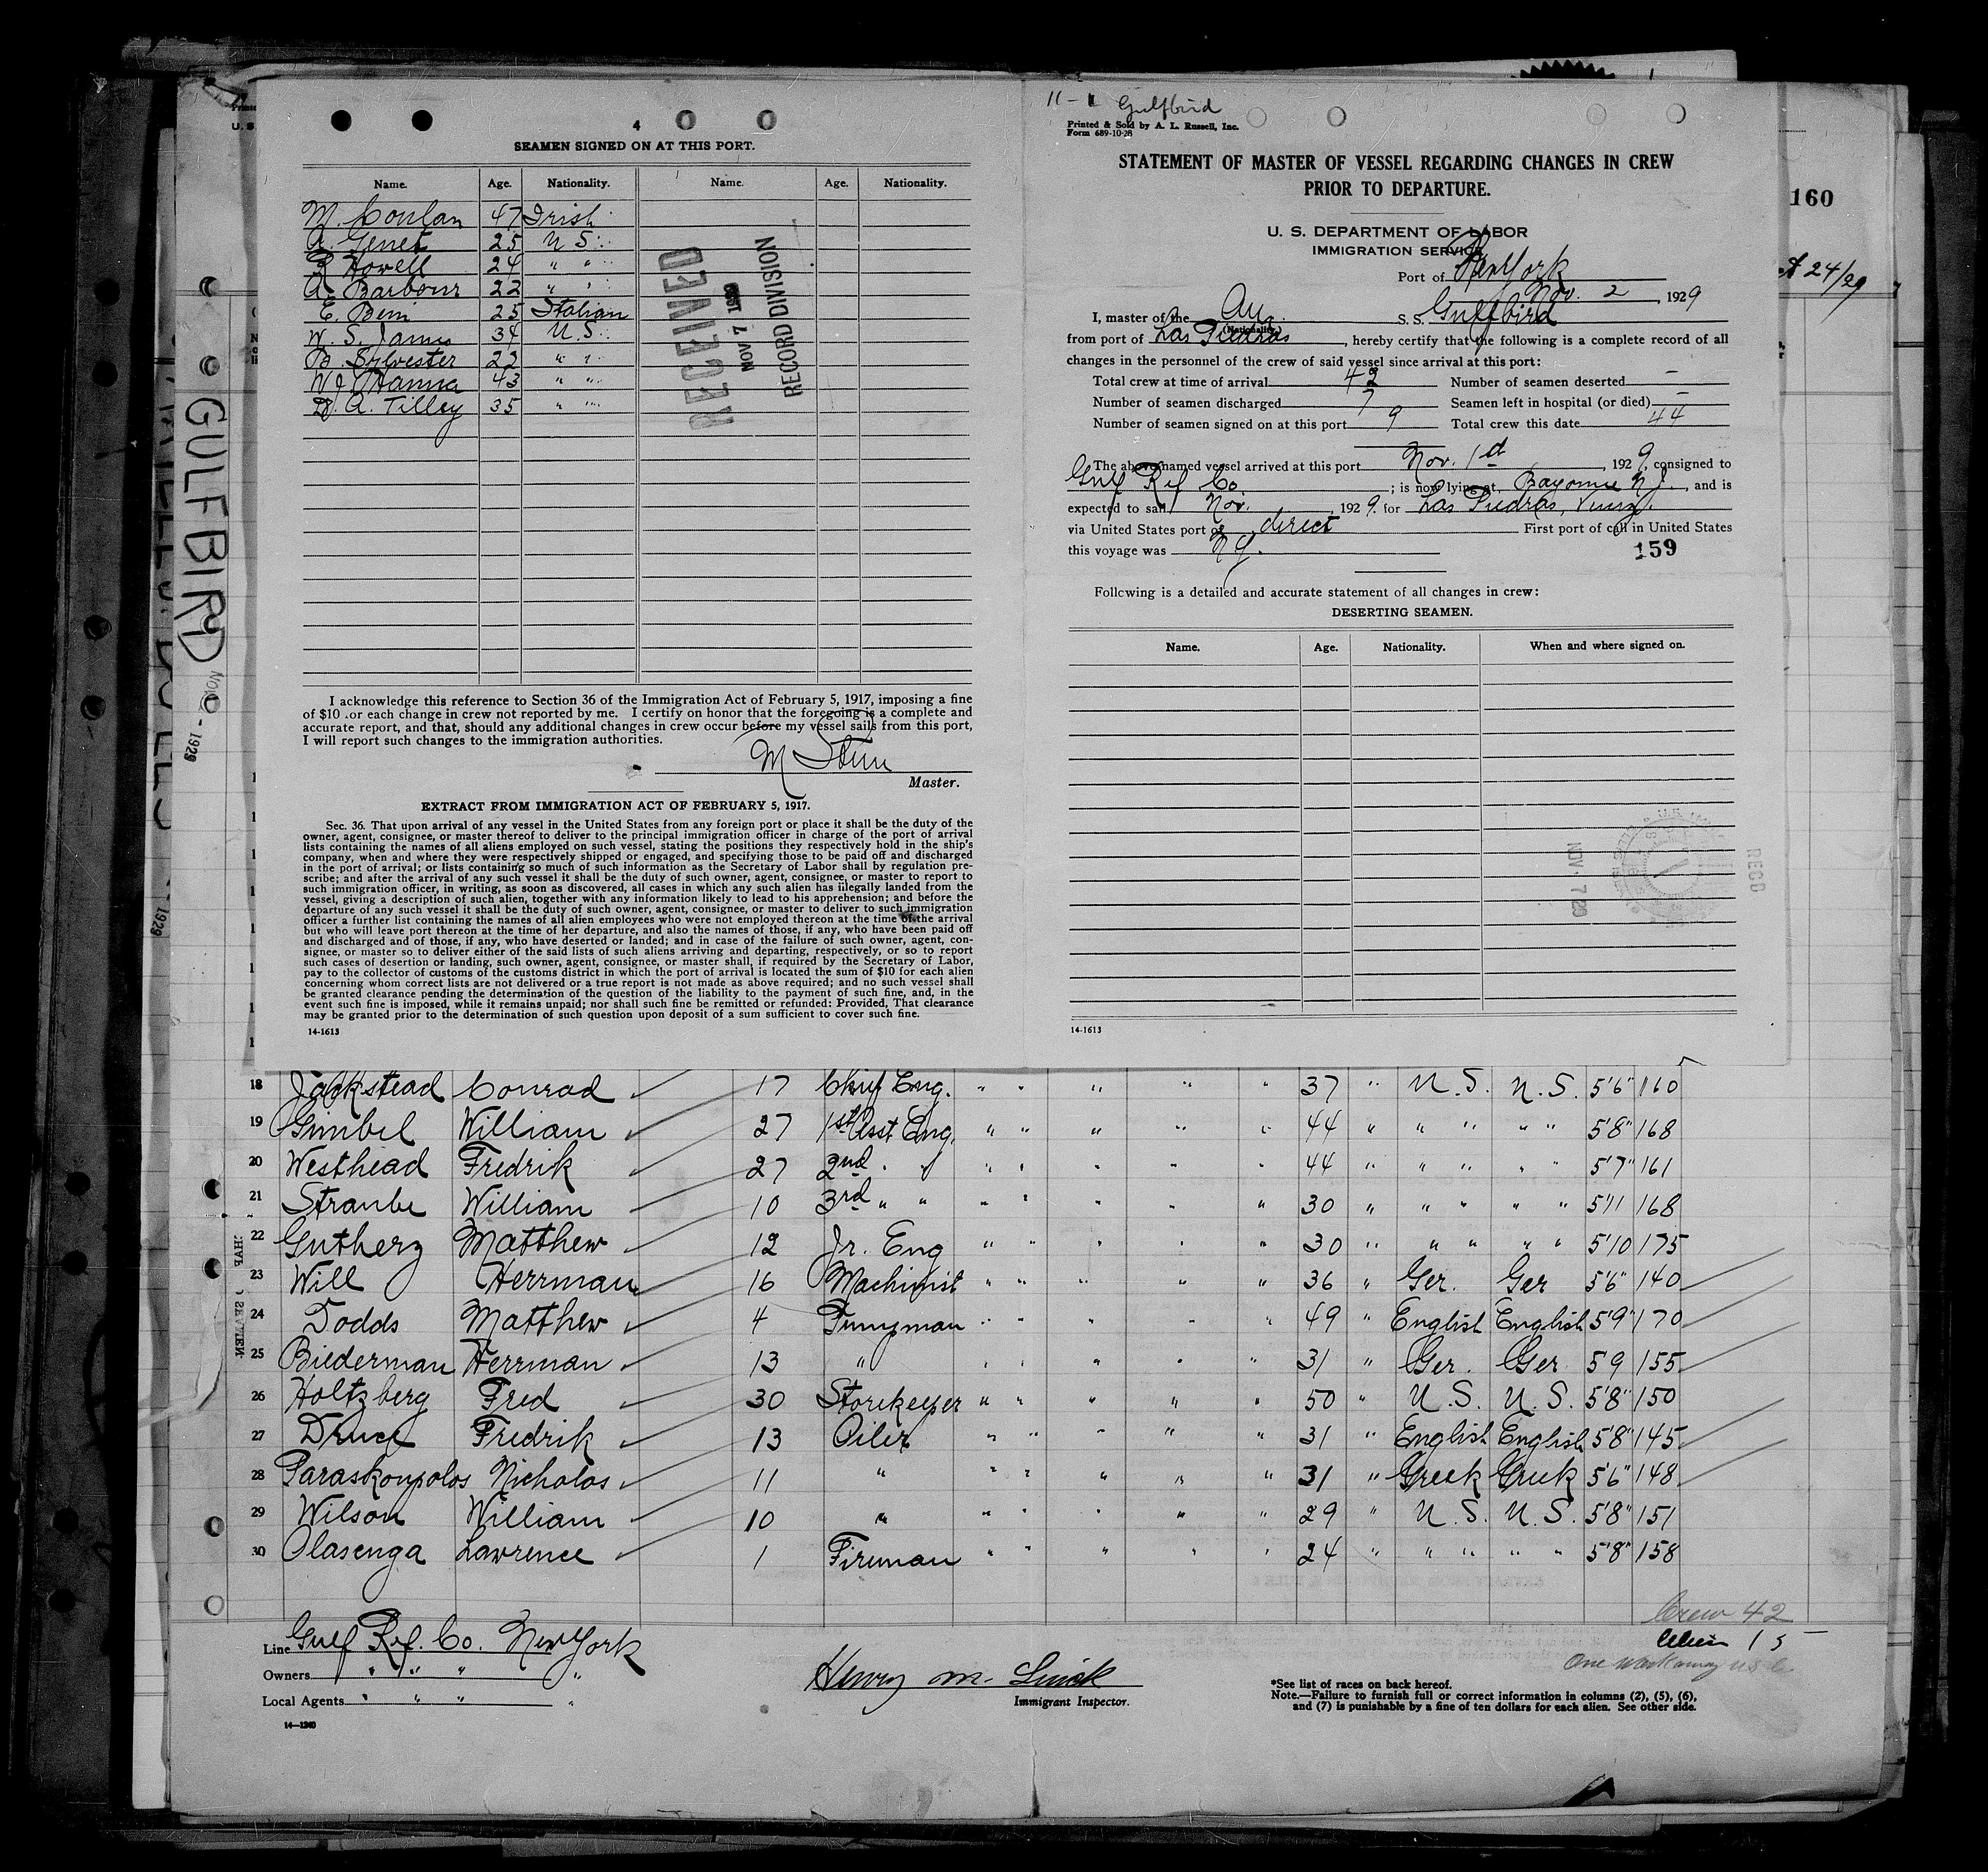 4
SEAMEN SIGNED ON AT THIS PORT.
Name. Age. Nationality. Name. Age. Nationality.
M. Conlan 47 Irish
A. Genet 25 U S
R Howell 24 " "
A. Barbour 22 " "
E. Bem 25 Italian
W. S. James 34 U.S.
B. Sylvester 22 " "
W J Hanna 43 " "
D. A. Tilley 35 " "
RECEIVED
NOV 7 1929
RECORD DIVISION
I acknowledge this reference to Section 36 of the Immigration Act of February 5, 1917, imposing a fine
of $10 for each change in crew not reported by me. I certify on honor that the foregoing is a complete and
accurate report, and that, should any additional changes in crew occur before my vessel sails from this port,
I will report such changes to the immigration authorities.
M
Master.
EXTRACT FROM IMMIGRATION ACT OF FEBRUARY 5, 1917.
Sec. 36. That upon arrival of any vessel in the United States from any foreign port or place it shall be the duty of the
owner, agent, consignee, or master thereof to deliver to the principal immigration officer in charge of the port of arrival
lists containing the names of all aliens employed on such vessel, stating the positions they respectively hold in the ship's
company, when and where they were respectively shipped or engaged, and specifying those to be paid off and discharged
in the port of arrival; or lists containing so much of such information as the Secretary of Labor shall by regulation pre-
scribe; and after the arrival of any such vessel it shall be the duty of such owner, agent, consignee, or master to report to
such immigration officer, in writing, as soon as discovered, all cases in which any such alien has illegally landed from the
vessel, giving a description of such alien, together with any information likely to lead to his apprehension; and before the
departure of any such vessel it shall be the duty of such owner, agent, consignee, or master to deliver to such immigration
officer a further list containing the names of all alien employees who were not employed thereon at the time of the arrival
but who will leave port thereon at the time of her departure, and also the names of those, if any, who have been paid off
and discharged and of those, if any, who have deserted or landed; and in case of the failure of such owner, agent, con-
signee, or master so to deliver either of the said lists of such aliens arriving and departing, respectively, or so to report
such cases of desertion or landing, such owner, agent, consignee, or master shall, if required by the Secretary of Labor,
pay to the collector of customs of the customs district in which the port of arrival is located the sum of $10 for each alien
concerning whom correct lists are not delivered or a true report is not made as above required; and no such vessel shall
be granted clearance pending the determination of the question of the liability to the payment of such fine, and, in the
event such fine is imposed, while it remains unpaid; nor shall such fine be remitted or refunded: Provided, That clearance
may be granted prior to the determination of such question upon deposit of a sum sufficient to cover such fine.
14-1613
11 - 1 Gulfbird
Printed & Sold by A. L. Russell, Inc.
Form 689-10-28
STATEMENT OF MASTER OF VESSEL REGARDING CHANGES IN CREW
PRIOR TO DEPARTURE.
U. S. DEPARTMENT OF LABOR
IMMIGRATION SERVICE
Port of New York
Nov. 2, 1929
I, master of the Am. S. S. Gulfbird
(Nationality)
from port of Las Piedras, hereby certify that the following is a complete record of all
changes in the personnel of the crew of said vessel since arrival at this port:
Total crew at time of arrival 42 Number of seamen deserted -
Number of seamen discharged 7 Seamen left in hospital (or died) -
Number of seamen signed on at this port 9 Total crew this date 44
The above named vessel arrived at this port Nov. 1st, 1929, consigned to
Gulf Ref Co; is now lying at Bayonne N.J., and is
expected to sail Nov. 1929. for Las Piedras, Venez.
via United States port of direct First port of call in United States
this voyage was N Y.
159
Following is a detailed and accurate statement of all changes in crew:
DESERTING SEAMEN.
Name. Age. Nationality. When and where signed on.
REC'D
NOV 7 29
14-1613
160
24/29
GULFBIRD
NOV 2 - 1929
1929
18 Jackstead Conrad 17 Chief Eng. " " " " " 37 " U.S. U.S. 5'6" 160
19 Gimbel William 27 1st Asst Eng. " " " " " 44 " " " " " 5'8" 168
20 Westhead Fredrik 27 2nd " " " " " " " 44 " " " " " 5'7" 161
21 Straube William 10 3rd " " " " " " " 30 " " " " " 5'11 168
22 Gutherz Matthew 12 Jr. Eng " " " " " 30 " " " " " 5'10 175
23 Will Herrman 16 Machinist " " " " " 36 " Ger. Ger 5'6" 140
24 Dodds Matthew 4 Pumpman " " " " " 49 " English English 5'9" 170
25 Biederman Herrman 13 " " " " " " 31 " Ger. Ger 5 9 155
26 Holtzberg Fred 30 Storekeeper " " " " " 50 " U.S. U.S. 5'8" 150
27 Druce Fredrik 13 Oiler " " " " " 31 " English English 5'8" 145
28 Paraskoupolos Nicholas 11 " " " " " " 31 " Greek Greek 5'6" 148
29 Wilson William 10 " " " " " " 29 " U.S. U.S. 5'8" 151
30 Olasenga Lawrence 1 Fireman " " " " " 24 " " " " " 5'8" 158
Crew 42
Alien 15
One Workaway
Line Gulf Ref. Co. New York
Owners " " " "
Local Agents " " " "
14-1240
Henry M.
Immigrant Inspector.
*See list of races on back hereof.
Note.—Failure to furnish full or correct information in columns (2), (5), (6),
and (7) is punishable by a fine of ten dollars for each alien. See other side.